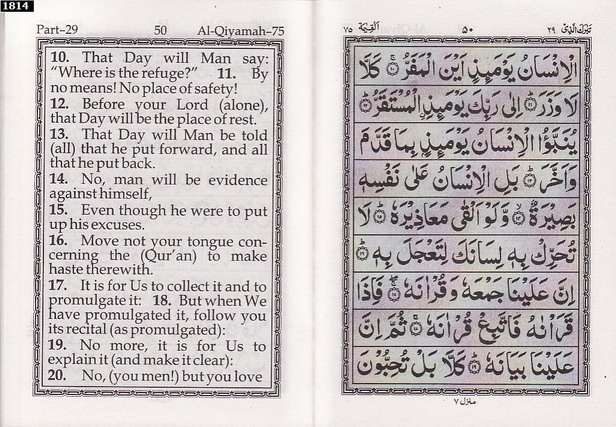 1814
Part–29 50 Al-Qiyamah–75
10. That Day will Man say:
"Where is the refuge?" 11. By
no means! No place of safety!
12. Before your Lord (alone),
that Day will be the place of rest.
13. That Day will Man be told
(all) that he put forward, and all
that he put back.
14. No, man will be evidence
against himself,
15. Even though he were to put
up his excuses.
16. Move not your tongue con-
cerning the (Qur'an) to make
haste therewith.
17. It is for Us to collect it and to
promulgate it: 18. But when We
have promulgated it, follow you
its recital (as promulgated):
19. No more, it is for Us to
explain it (and make it clear):
20. No, (you men!) but you love
القيمة ٧٥ ٥٠ تبرك الذي ٢٩
الْاِنْسَانُ يَوْمَئِذٍ اَيْنَ الْمَفَرُّ ۚ ۝١٠ كَلَّا
لَا وَزَرَ ۝١١ اِلٰى رَبِّكَ يَوْمَئِذِ ۨالْمُسْتَقَرُّ ۝١٢
يُنَبَّؤُا الْاِنْسَانُ يَوْمَئِذٍۭ بِمَا قَدَّمَ
وَاَخَّرَ ۝١٣ بَلِ الْاِنْسَانُ عَلٰى نَفْسِهٖ
بَصِيْرَةٌ ۝١٤ وَّلَوْ اَلْقٰى مَعَاذِيْرَهٗ ۝١٥ لَا
تُحَرِّكْ بِهٖ لِسَانَكَ لِتَعْجَلَ بِهٖ ۝١٦
اِنَّ عَلَيْنَا جَمْعَهٗ وَقُرْاٰنَهٗ ۝١٧ فَاِذَا
قَرَاْنٰهُ فَاتَّبِعْ قُرْاٰنَهٗ ۝١٨ ثُمَّ اِنَّ
عَلَيْنَا بَيَانَهٗ ۝١٩ كَلَّا بَلْ تُحِبُّوْنَ
منزل ٧